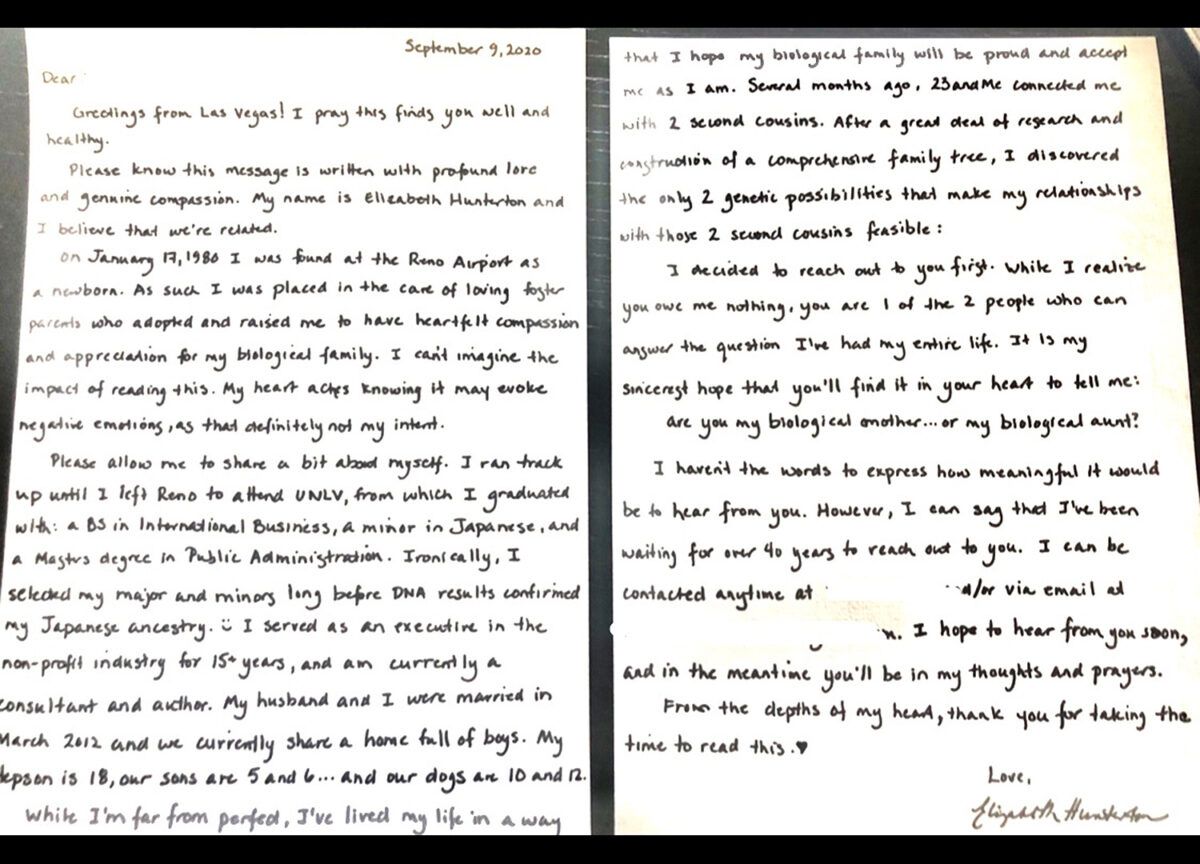 September 9, 2020
Dear
Greetings from Las Vegas! I pray this finds you well and
healthy.
Please know this message is written with profound love
and genuine compassion. My name is Elizabeth Hunterton and
I believe that we're related.
On January 17, 1980 I was found at the Reno Airport as
a newborn. As such I was placed in the care of loving foster
parents who adopted and raised me to have heartfelt compassion
and appreciation for my biological family. I can't imagine the
impact of reading this. My heart aches knowing it may evoke
negative emotions, as that definitely not my intent.
Please allow me to share a bit about myself. I ran track
up until I left Reno to attend UNLV, from which I graduated
with: a BS in International Business, a minor in Japanese, and
a Masters degree in Public Administration. Ironically, I
selected my major and minors long before DNA results confirmed
my Japanese ancestry. ü I served as an executive in the
non-profit industry for 15+ years, and am currently a
consultant and author. My husband and I were married in
March 2012 and we currently share a home full of boys. My
depson is 18, our sons are 5 and 6... and our dogs are 10 and 12.
While I'm far from perfect, I've lived my life in a way
that I hope my biological family will be proud and accept
me as I am. Several months ago, 23andMe connected me
with 2 second cousins. After a great deal of research and
construction of a comprehensive family tree, I discovered
the only 2 genetic possibilities that make my relationships
with those 2 second cousins feasible:
I decided to reach out to you first. While I realize
you owe me nothing, you are 1 of the 2 people who can
answer the question I've had my entire life. It is my
sincerest hope that you'll find it in your heart to tell me:
Are you my biological mother... or my biological aunt?
I haven't the words to express how meaningful it would
be to hear from you. However, I can say that I've been
waiting for over 40 years to reach out to you. I can be
contacted anytime at d/or via email at
n. I hope to hear from you soon,
and in the meantime you'll be in my thoughts and prayers.
From the depths of my heart, thank you for taking the
time to read this. ♥
Love,
Elizabeth Hunterton